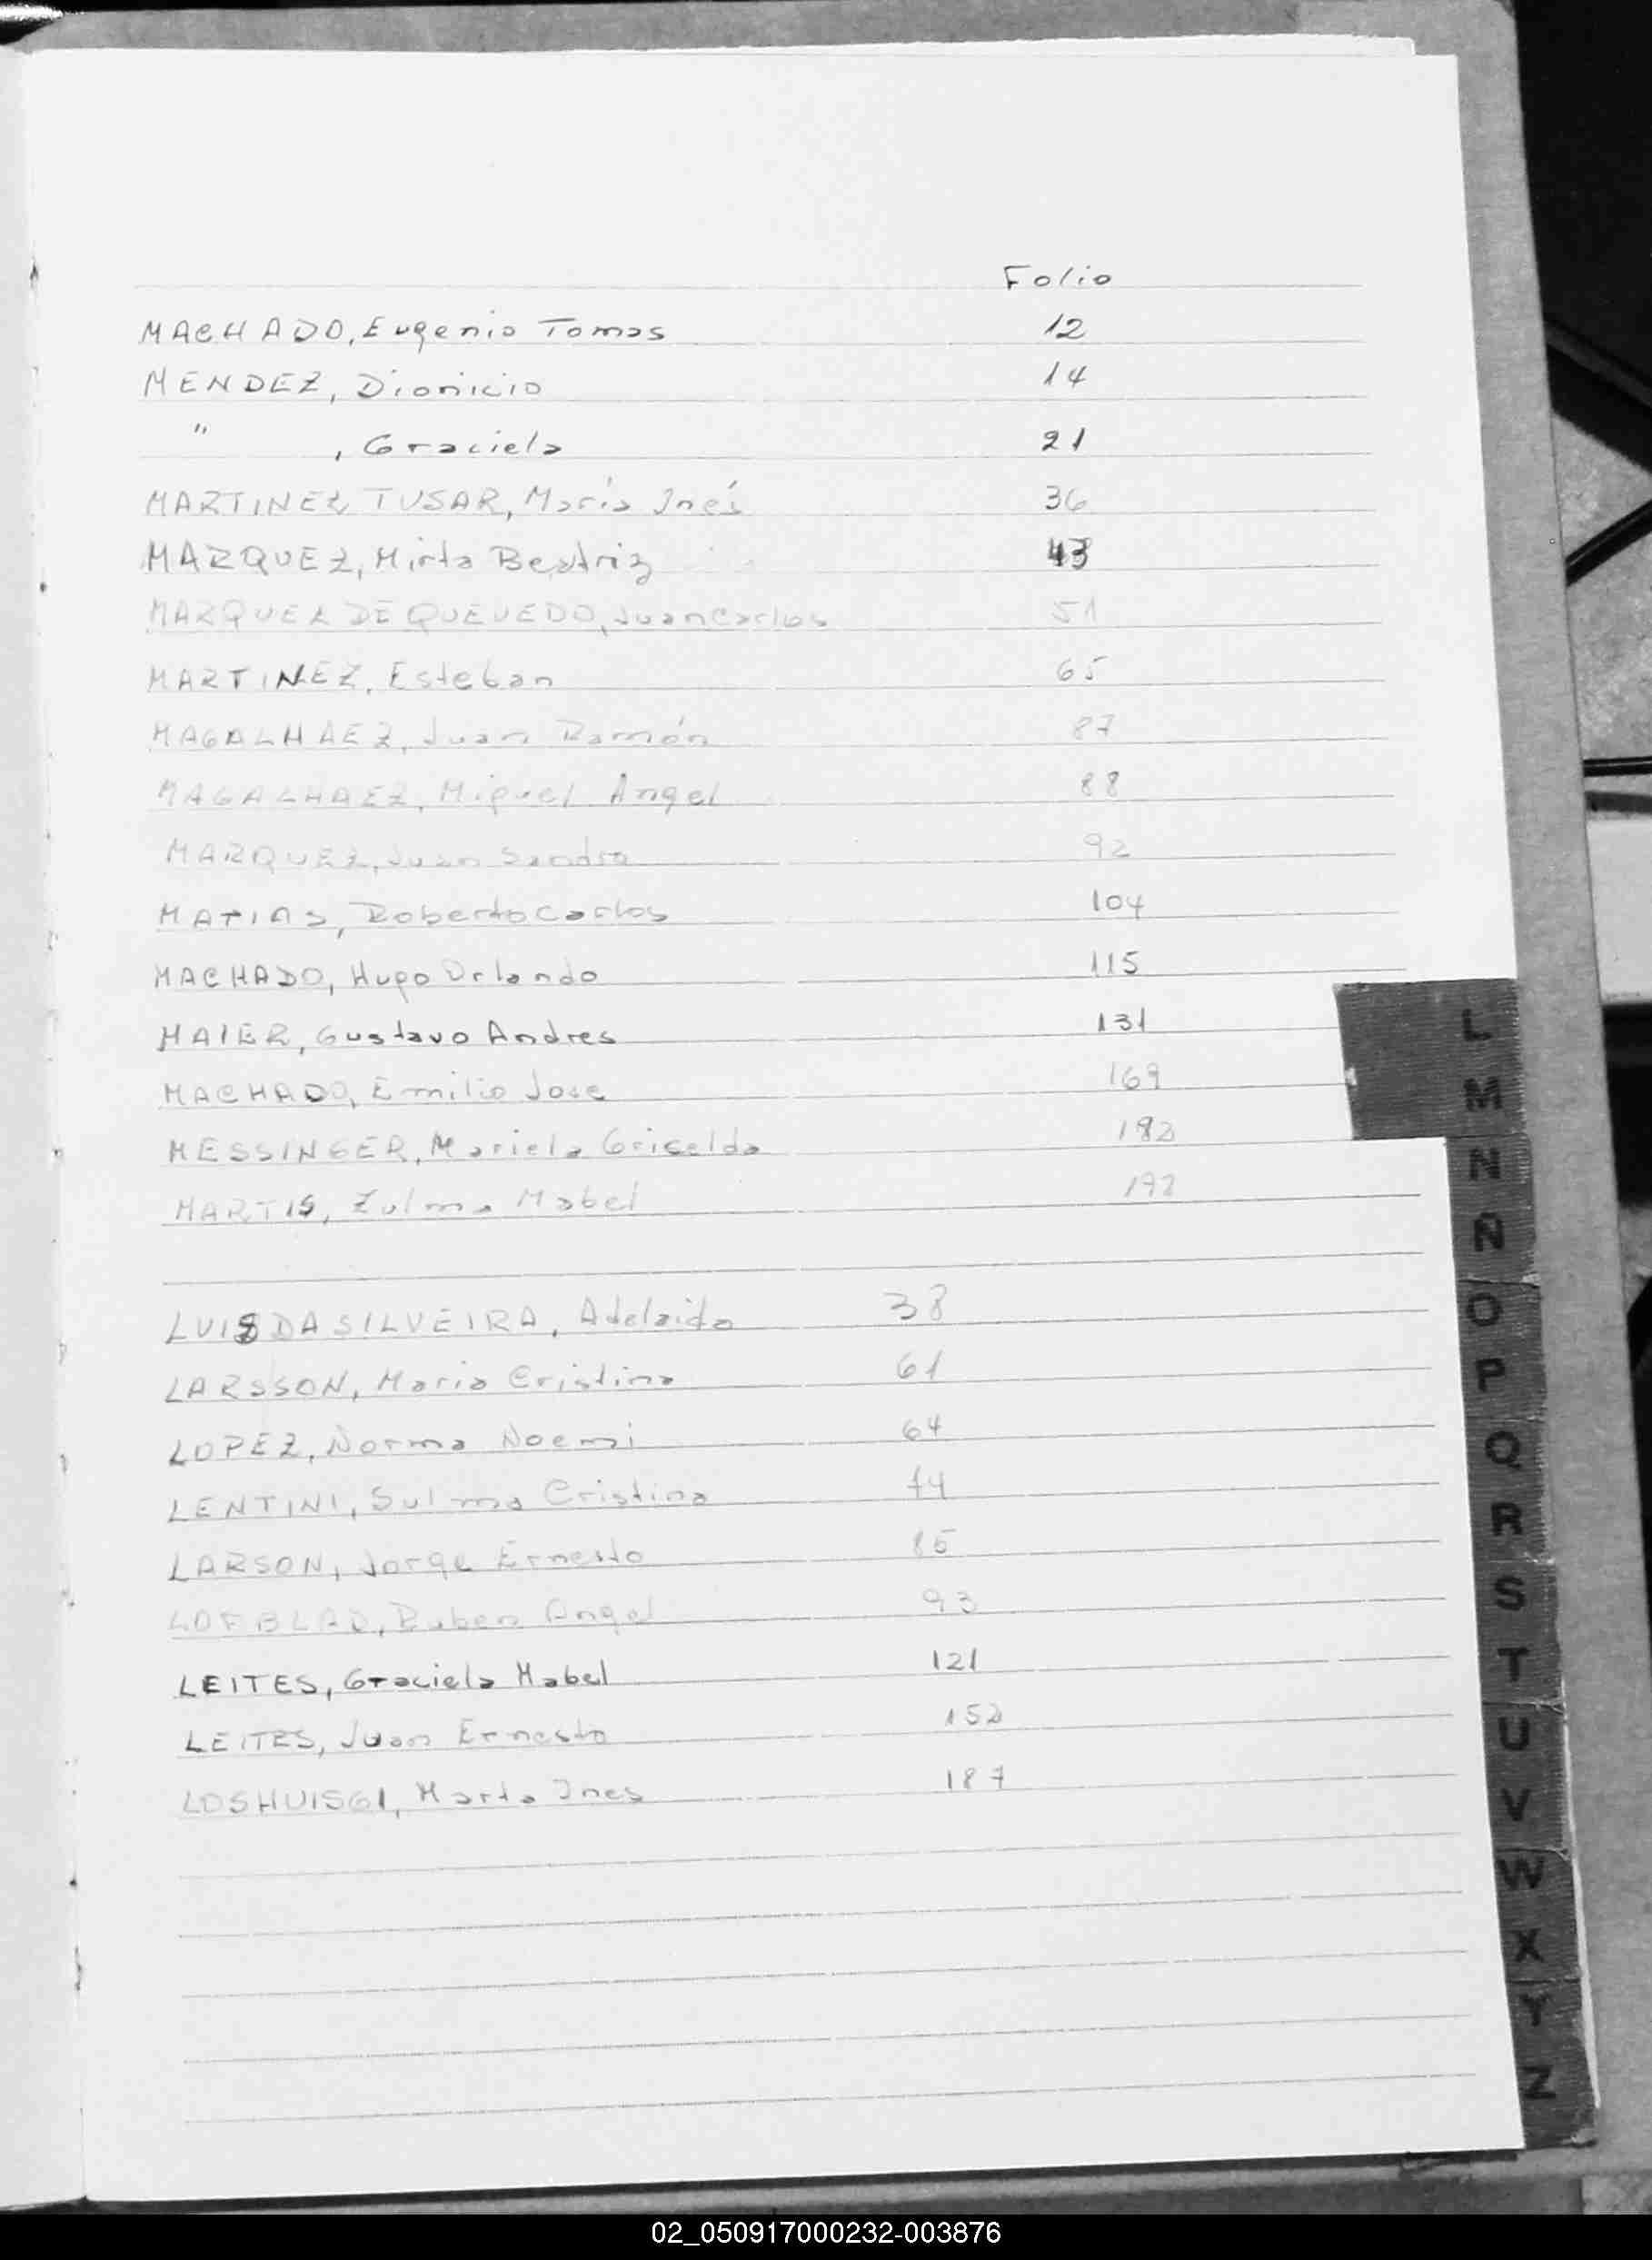 Folio
MACHADO, Eugenio Tomas 12
MENDEZ, Dionicio 14
" , Graciela 21
MARTINEZ TUSAR, María Inés 36
MARQUEZ, Mirta Beatriz 43
MARQUEZ DE QUEVEDO, Juan Carlos 51
MARTINEZ, Esteban 65
MAGALHAEZ, Juan Ramón 87
MAGALHAEZ, Miguel Angel 88
MARQUEZ, Juan Sandro 92
MATIAS, Roberto Carlos 104
MACHADO, Hugo Orlando 115
MAIER, Gustavo Andres 131
MACHADO, Emilio Jose 169
MESSINGER, Mariela Griselda 182
MARTIS, Zulma Mabel 192
LUIS DA SILVEIRA, Adelaida 38
LARSSON, Maria Cristina 61
LOPEZ, Norma Noemi 64
LENTINI, Sulma Cristina 74
LARSON, Jorge Ernesto 85
LOFBLAD, Ruben Angel 93
LEITES, Graciela Mabel 121
LEITES, Juan Ernesto 152
LOSHUISGI, Marta Ines 187
L
M
N
Ñ
O
P
Q
R
S
T
U
V
W
X
Y
Z
02_050917000232-003876